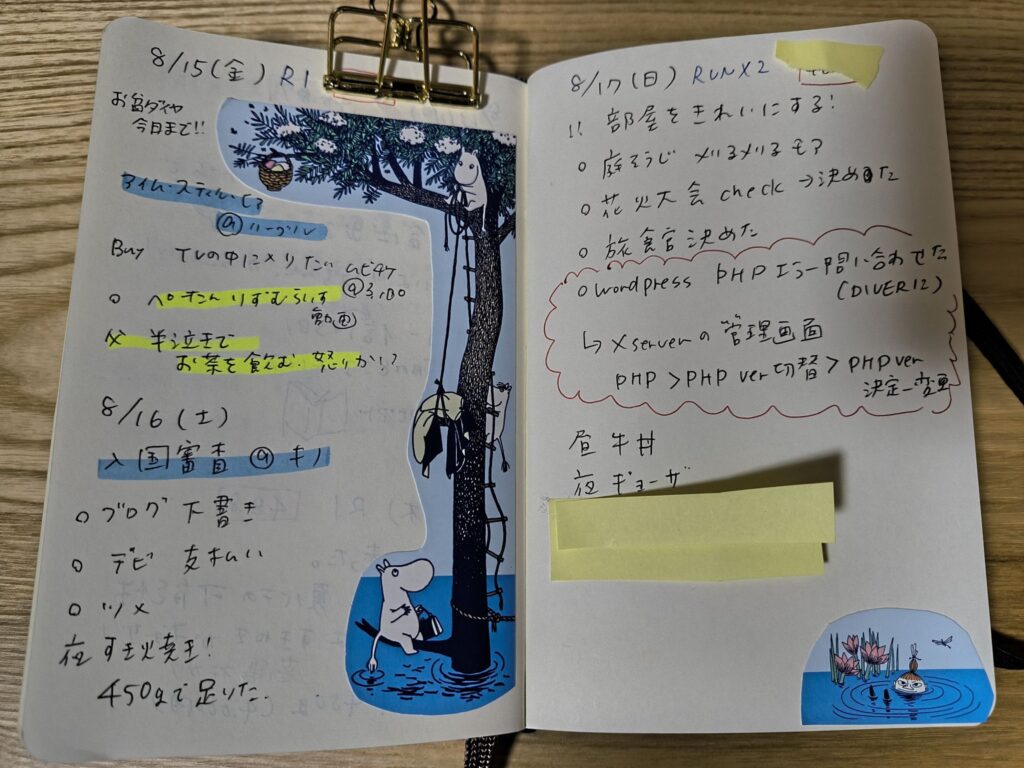 8/15(金) R1
お盆ダイヤ
今日まで!!
タイム・スティル・
@
Buy TVの中に
ムビチケ
@
動画
父 半泣きで
お茶を飲む…怒りか!?
8/16(土)
入国審査 @ キノ
○ ブログ 下書き
○ デビ 支払い
○ ツメ
夜 すき焼き!
450gで足りた.
8/17(日) RUN X2
!! 部屋をきれいにする!
○ 庭そうじ メリるメリる モア
○ 花火大会 check →決めた
○ 旅館決めた
○ wordpress PHP エラー問い合わせた
(DIVER12)
↳ Xserverの管理画面
PHP > PHP ver 切替 > PHP ver
決定→変更
昼 牛丼
夜 ギョーザ